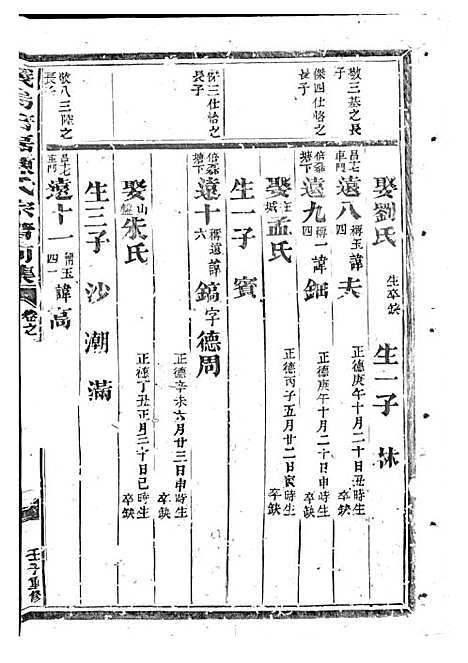 娶劉氏 生卒缺 生一子 林
敬三基之長子
呂七車門 遠八 稱玉四 諱夫 正德庚午十月二十日丑時生 卒缺
傑四仕恪之長子
倍磊塘下 遠九 稱一四 諱鈿 正德庚午十月二十日申時生 卒缺
娶孟氏 正德丙子五月廿二日寅時生 卒缺
生一子 賓
保三仕恰之長子
倍磊塘下 遠十 稱遠六 諱鎬 字德周 正德辛未六月廿三日申時生 卒缺
娶山盤朱氏 正德丁丑正月三十日巳時生 卒缺
生三子 沙 潮 滿
敬八三陸之長子
呂七車門 遠十一 稱玉四一 諱高
氏宗譜 卷之
壬子重修